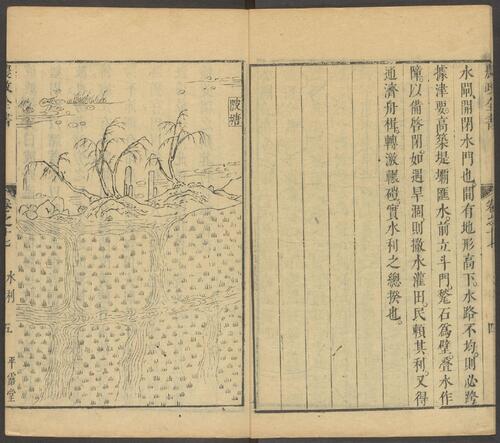 水閘開閉水門也間有地形高下水路不均則必跨
據津要高築堤壩匯水前立斗門甃石為壁疊水作
障以備啓閉如遇旱涸則撤水灌田民賴其利又得
通濟舟楫轉激輾磑實水利之總揆也
農政全書
卷之
水利
五
平露堂